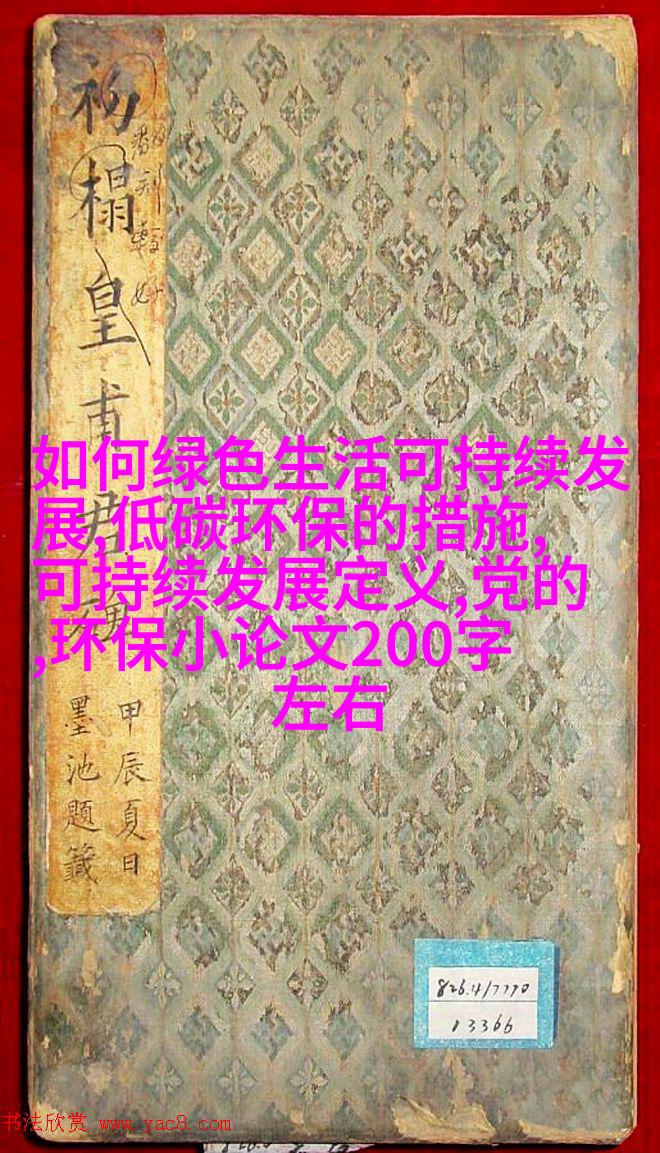 初榻皇甫君碑
甲辰夏日
墨池題籤
如何绿色生活可持续发
展,低碳环保的措施,
可持续发展定义,党的
,环保小论文200字
左右
826.4/7770
13366
书法欣赏 www.yac8.com